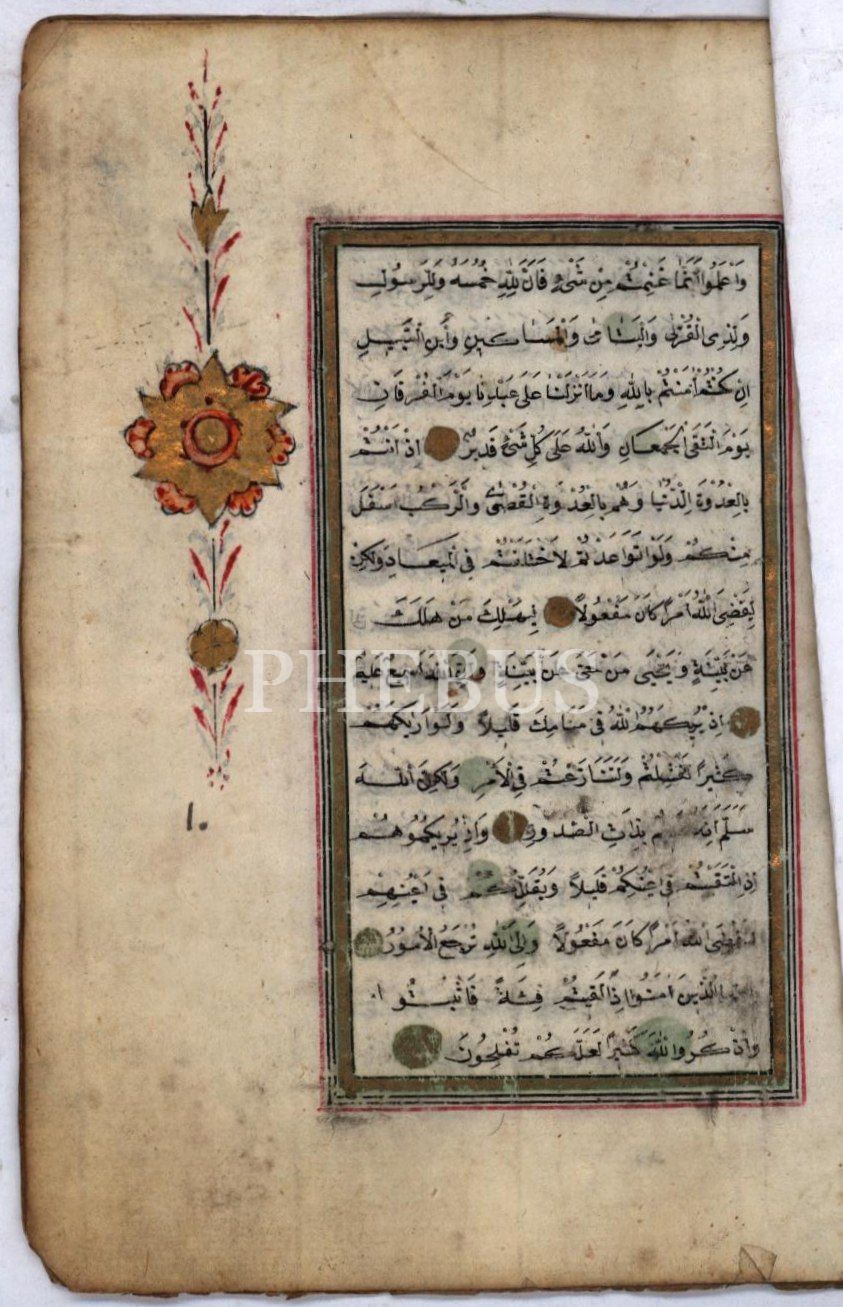 وَاعْلَمُوا أَنَّمَا غَنِمْتُمْ مِنْ شَيْءٍ فَأَنَّ لِلَّهِ خُمُسَهُ وَلِلرَّسُولِ
وَلِذِي الْقُرْبَى وَالْيَتَامَى وَالْمَسَاكِينِ وَابْنِ السَّبِيلِ
اِنْ كُنْتُمْ اٰمَنْتُمْ بِاللَّهِ وَمَا اَنْزَلْنَا عَلَى عَبْدِنَا يَوْمَ الْفُرْقَانِ
يَوْمَ الْتَقَى الْجَمْعَانِ وَاللَّهُ عَلَى كُلِّ شَيْءٍ قَدِيرٌ اِذْ اَنْتُمْ
بِالْعُدْوَةِ الدُّنْيَا وَهُمْ بِالْعُدْوَةِ الْقُصْوَى وَالرَّكْبُ اَسْفَلَ
مِنْكُمْ وَلَوْ تَوَاعَدْتُمْ لَاخْتَلَفْتُمْ فِي الْمِيعَادِ وَلَكِنْ
لِيَقْضِيَ اللَّهُ اَمْرًا كَانَ مَفْعُولًا لِيَهْلِكَ مَنْ هَلَكَ
عَنْ بَيِّنَةٍ وَيَحْيَى مَنْ حَيَّ عَنْ بَيِّنَةٍ وَاِنَّ اللَّهَ لَسَمِيعٌ عَلِيمٌ
اِذْ يُرِيكَهُمُ اللَّهُ فِي مَنَامِكَ قَلِيلًا وَلَوْ اَرَيكَهُمْ
كَثِيرًا لَفَشِلْتُمْ وَلَتَنَازَعْتُمْ فِي الْاَمْرِ وَلَكِنَّ اللَّهَ
سَلَّمَ اِنَّهُ عَلِيمٌ بِذَاتِ الصُّدُورِ وَاِذْ يُرِيكُمُوهُمْ
اِذِ الْتَقَيْتُمْ فِي اَعْيُنِكُمْ قَلِيلًا وَيُقَلِّلُكُمْ فِي اَعْيُنِهِمْ
لِيَقْضِيَ اللَّهُ اَمْرًا كَانَ مَفْعُولًا وَاِلَى اللَّهِ تُرْجَعُ الْاُمُورُ
الَّذِينَ اٰمَنُوا اِذَا لَقِيتُمْ فِئَةً فَاثْبُتُوا
وَاذْكُرُوا اللَّهَ كَثِيرًا لَعَلَّكُمْ تُفْلِحُونَ
١٠
PHEBUS